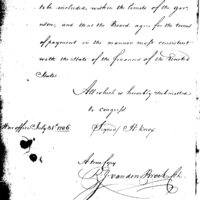 to be included within the limits of the gov-
and that the Board agree for the terms
of payment in the manner most consistent
with the State of the finances of the United
States.
All which is humbly submitted
to congress
War office July 31st 1786 Signed H. Knox
A true Copy